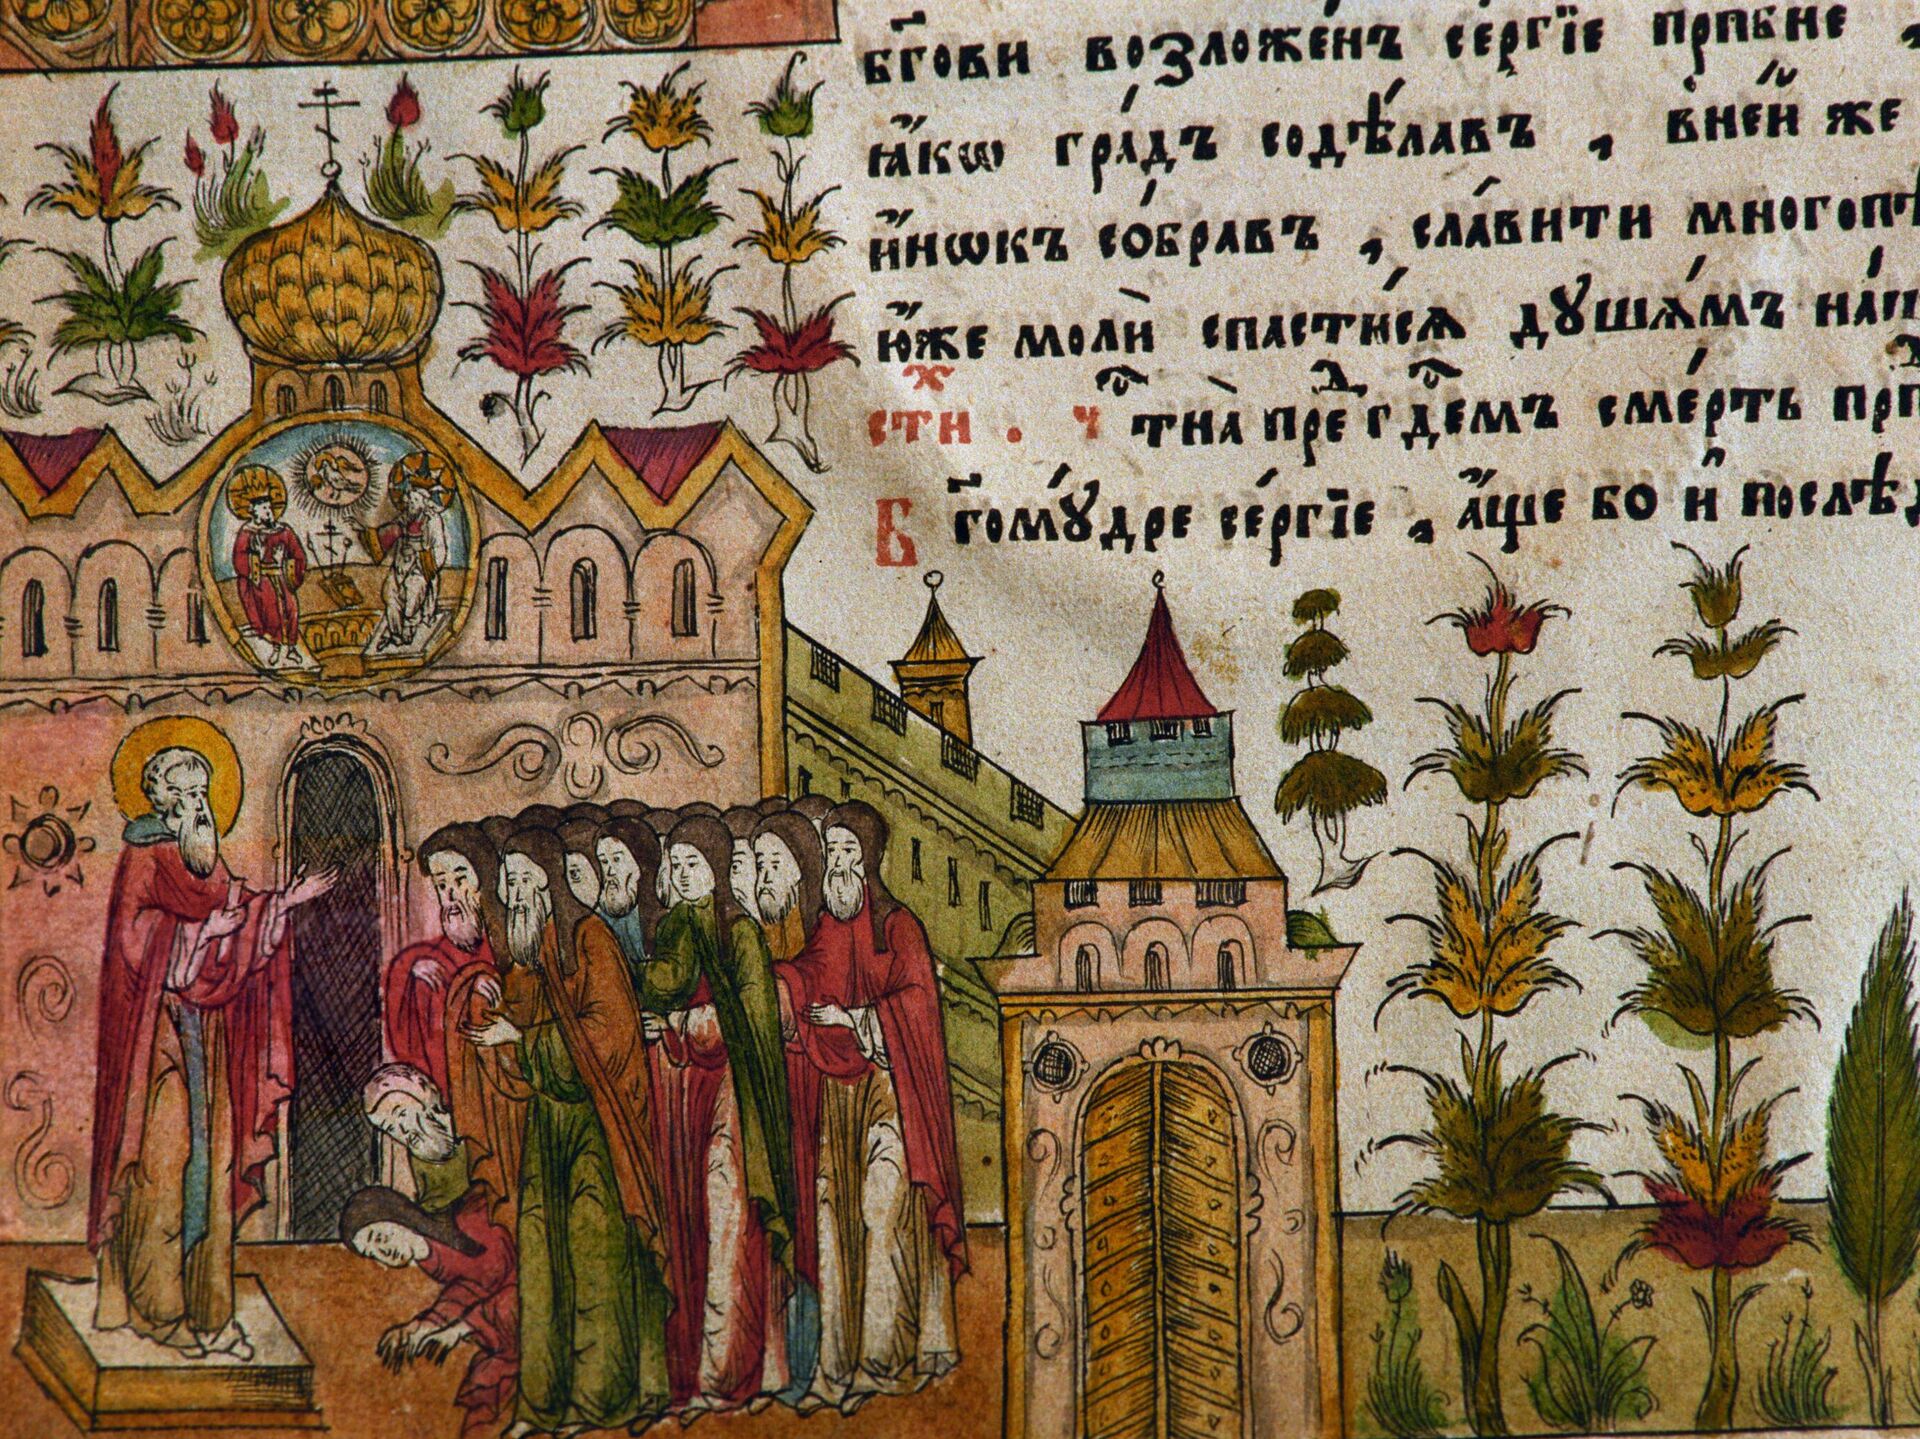 бг҃ови возложе́нъ се́ргїе прпⷣбне ,
ꙗ҆́кѡ гра́дъ содѣ́лавъ , в̾не́й же
и҆́нѡкъ собра́въ , сла́вити многопѣ
ю҆́же молѝ спасти́сѧ душа́мъ на́ш
сти́х . чⷭ҇тна̀ преⷣ гдⷭ҇емъ сме́рть прп
Бг҃ому́дре се́ргїе , а҆́ще бо и҆ послѣд